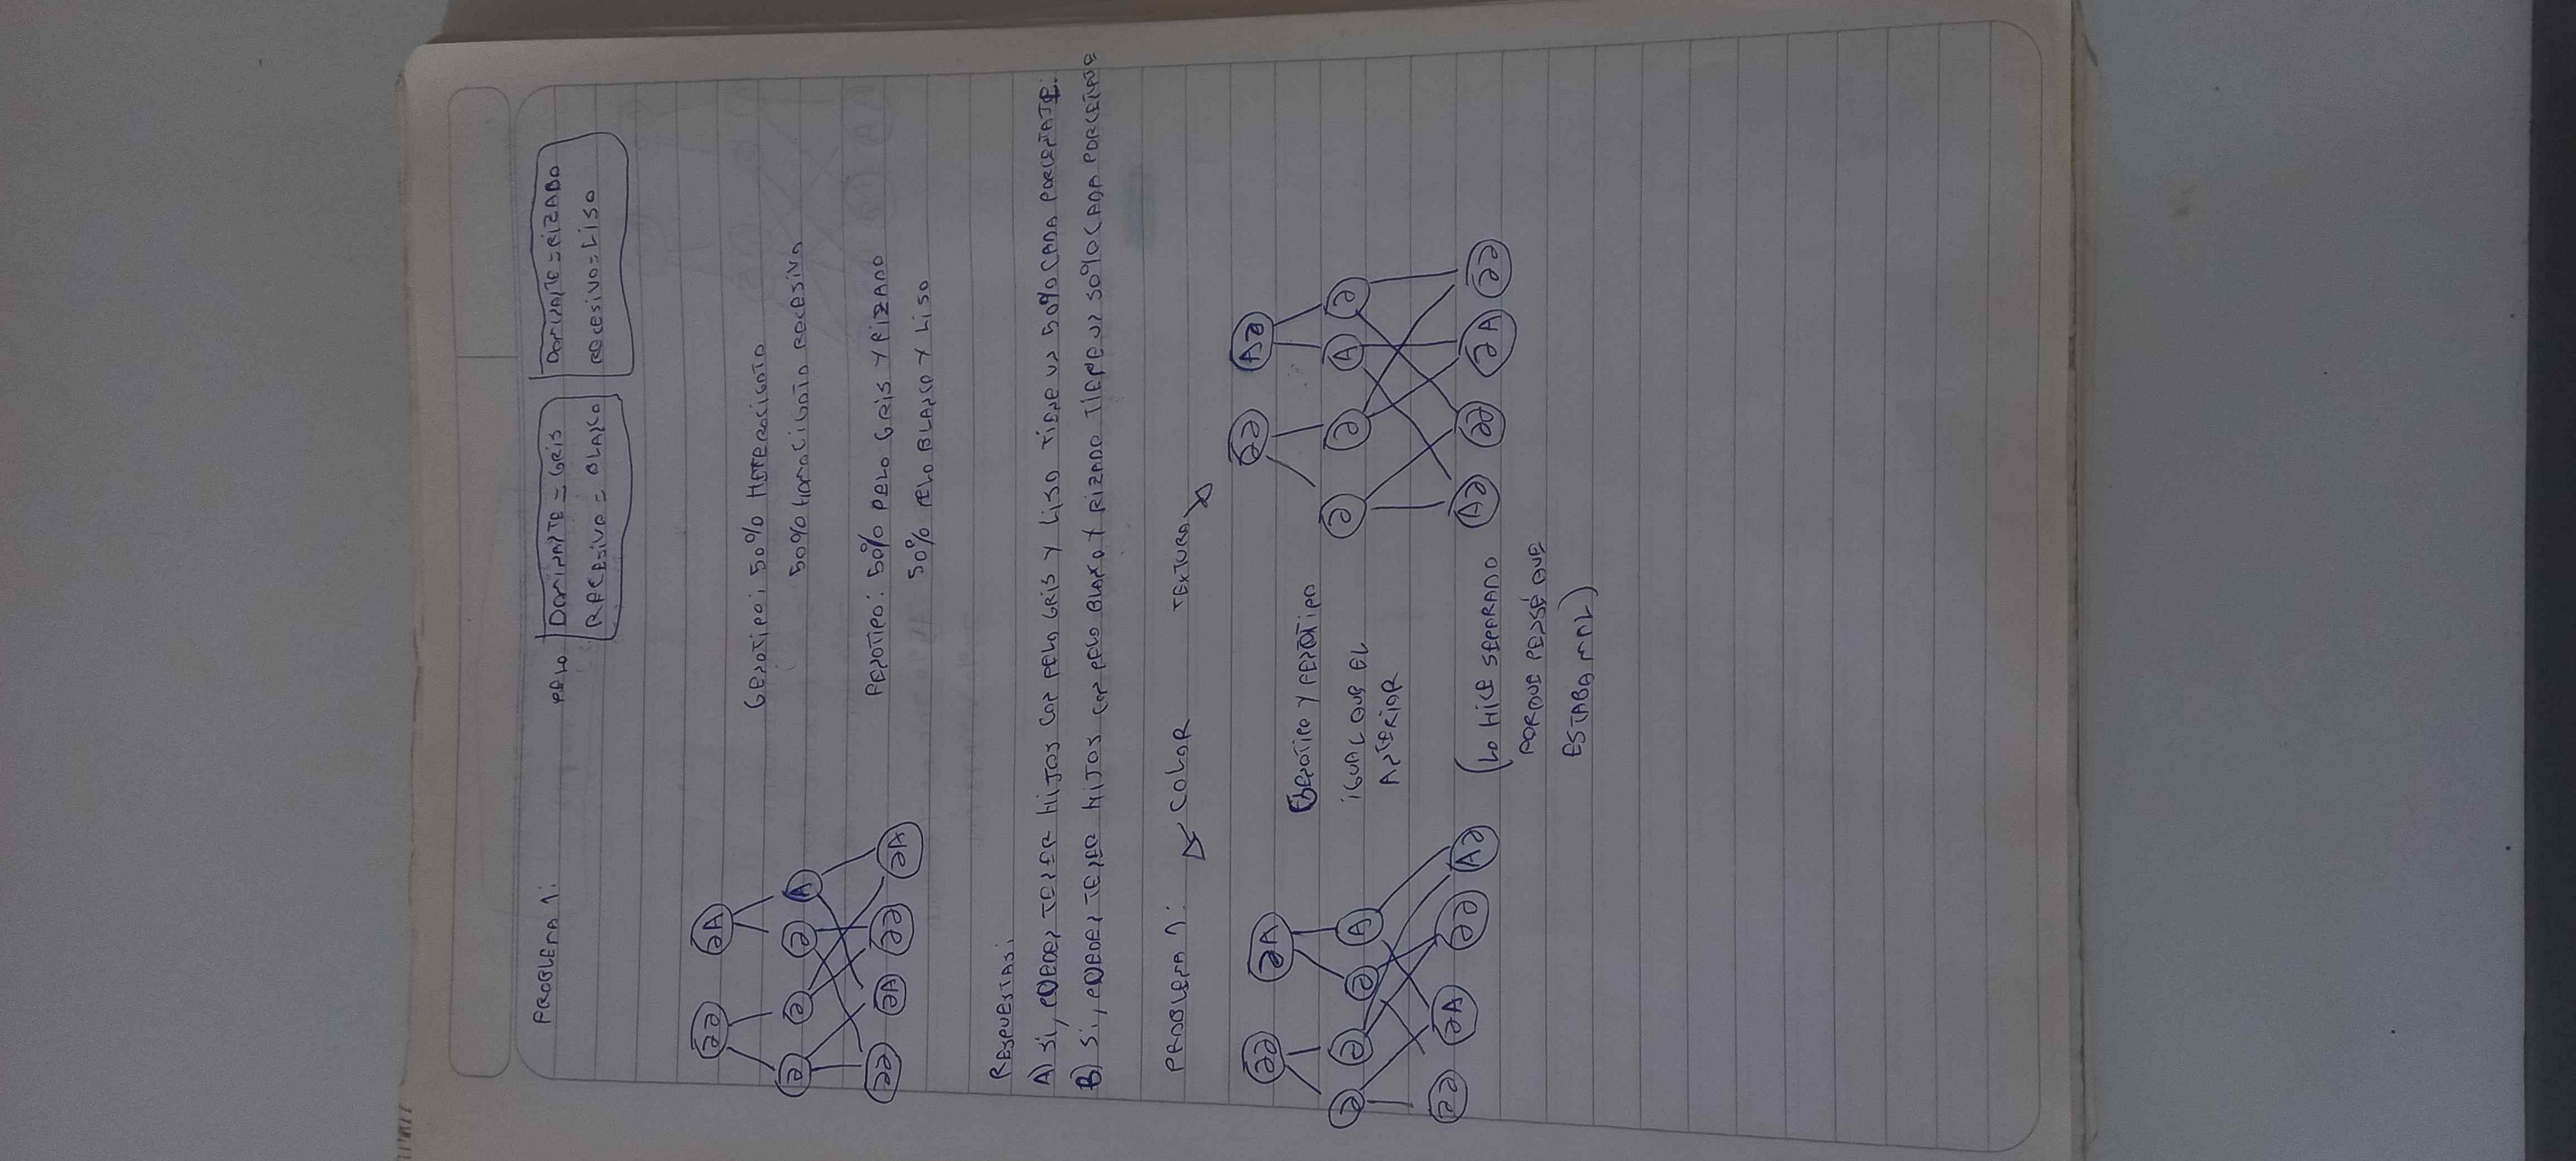 PROBLEMA 1:
PELO
DOMINANTE = GRIS
RECESIVO = BLANCO
DOMINANTE = RIZADO
RECESIVO = LISO
aa Aa
a a a A
aa Aa aa Aa
GENOTIPO: 50% HETEROCIGOTO
50% HOMOCIGOTO RECESIVO
FENOTIPO: 50% PELO GRIS Y RIZADO
50% PELO BLANCO Y LISO
RESPUESTAS:
A) SI, PUEDEN TENER HIJOS CON PELO GRIS Y LISO TIENE UN 50% CADA PORCENTAJE.
B) SI, PUEDEN TENER HIJOS CON PELO BLANCO Y RIZADO TIENE UN 50% CADA PORCENTAJE
PROBLEMA 1: COLOR TEXTURA
aa aA
a a a A
aa Aa aa Aa
GENOTIPO Y FENOTIPO
IGUAL QUE EL
ANTERIOR
aa Aa
a a A a
Aa aa aA aa
(LO HICE SEPARADO
PORQUE PENSÉ QUE
ESTABA MAL)